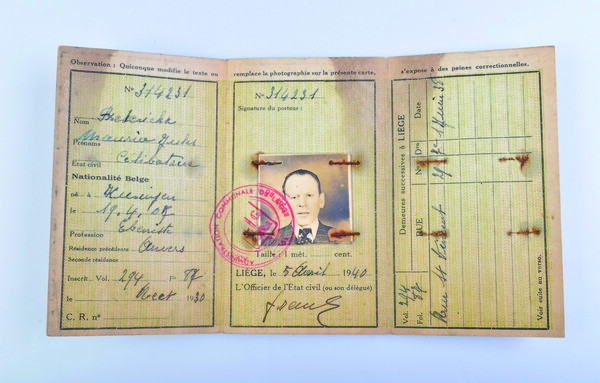 Observation : Quiconque modifie le texte ou remplace la photographie sur la présente carte, s'expose à des peines correctionnelles.
N° 314231
Nom
Prénoms Maurice
Etat civil Célibataire
Nationalité Belge
né à
le 19.4.08
Profession Ebéniste
Résidence précédente Anvers
Seconde résidence
Inscrit. Vol. 294 F° 87
le 1930
C. R. n°
N° 314231
Signature du porteur :
ADMINISTRATION COMMUNALE DE LIÉGE
Taille : 1 mèt. cent.
LIÉGE, le 5 Avril 1940
L'Officier de l'Etat civil (ou son délégué)
Demeures successives à LIÉGE
Date
Nos
RUE
Rue St Vincent
Vol. 294
Fol. 87
Voir suite au verso.